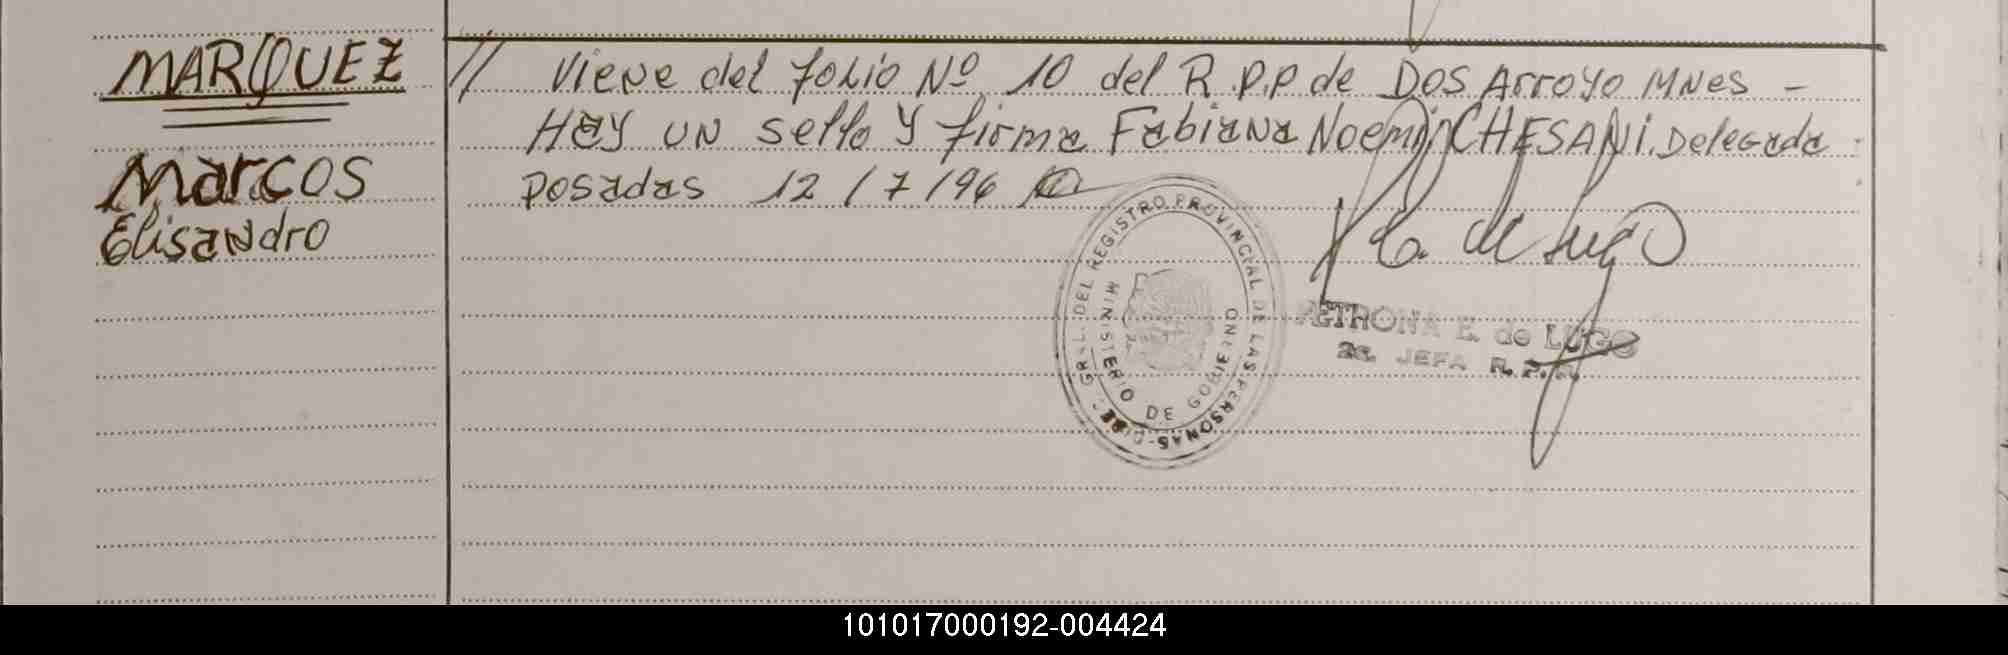 MARQUEZ
Marcos
Elisandro
// Viene del folio Nº 10 del R.P.P de DOS Arroyo MNES -
Hay UN sello y firma Fabiana Noemi CHESANI. Delegada
posadas 12/7/96
P. E. de Lugo
PETRONA E. de LUGO
2a. JEFA R.P.P.
DIRE. GRAL. DEL REGISTRO PROVINCIAL DE LAS PERSONAS
MINISTERIO DE GOBIERNO
101017000192-004424